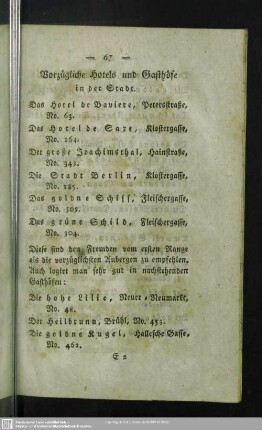 — 67 —
Vorzügliche Hotels und Gasthöfe
in der Stadt.
Das Hotel de Baviere, Petersstraße,
No. 65.
Das Hotel de Saxe, Klostergasse,
No. 164.
Der große Joachimsthal, Hainstraße,
No. 342.
Die Stadt Berlin, Klostergasse,
No. 185.
Das goldne Schiff, Fleischergasse,
No. 305.
Das grüne Schild, Fleischergasse,
No. 304.
Diese sind den Fremden vom ersten Range
als die vorzüglichsten Aubergen zu empfehlen.
Auch logiet man sehr gut in nachstehenden
Gasthöfen:
Die hohe Lilie, Neuer-Neumarkt,
No. 48.
Der Heilbrunn, Brühl, No. 453.
Die goldne Kugel, Hallesche Gasse,
No. 462.
E 2